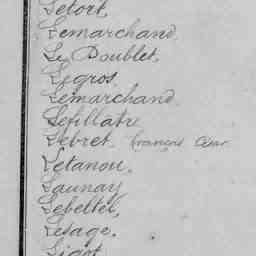 Letort,
Lemarchand.
Le Doublet,
Legros,
Lemarchand.
Lefillatre
Lebret, françois César
Letanou,
Launay
Lebeltel,
Lesage,
Ligot